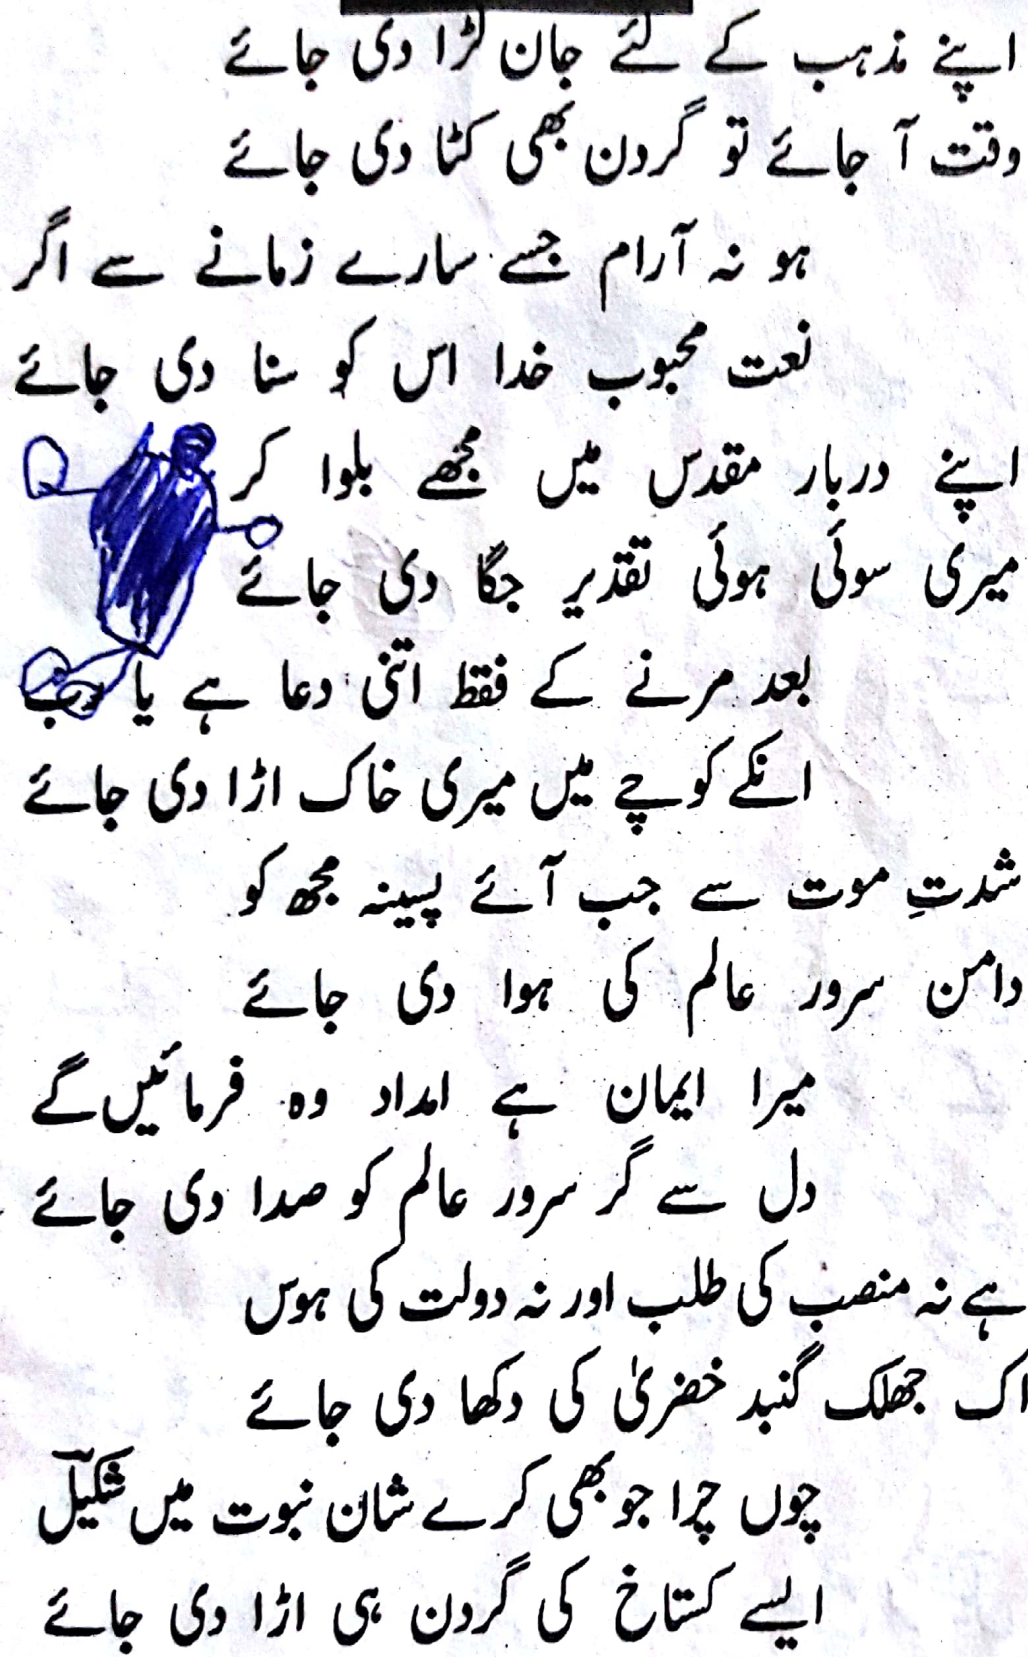 اپنے مذہب کے لئے جان لڑا دی جائے
وقت آ جائے تو گردن بھی کٹا دی جائے
ہو نہ آرام جسے سارے زمانے سے اگر
نعت محبوب خدا اس کو سنا دی جائے
اپنے دربار مقدس میں مجھے بلوا کر
میری سوئی ہوئی تقدیر جگا دی جائے
بعد مرنے کے فقط اتنی دعا ہے یا رب
انکے کوچے میں میری خاک اڑا دی جائے
شدتِ موت سے جب آئے پسینہ مجھ کو
دامن سرور عالم کی ہوا دی جائے
میرا ایمان ہے امداد وہ فرمائیں گے
دل سے گر سرور عالم کو صدا دی جائے
ہے نہ منصب کی طلب اور نہ دولت کی ہوس
اک جھلک گنبد خضریٰ کی دکھا دی جائے
چوں چرا جو بھی کرے شان نبوت میں شکیلؔ
ایسے کستاخ کی گردن ہی اڑا دی جائے